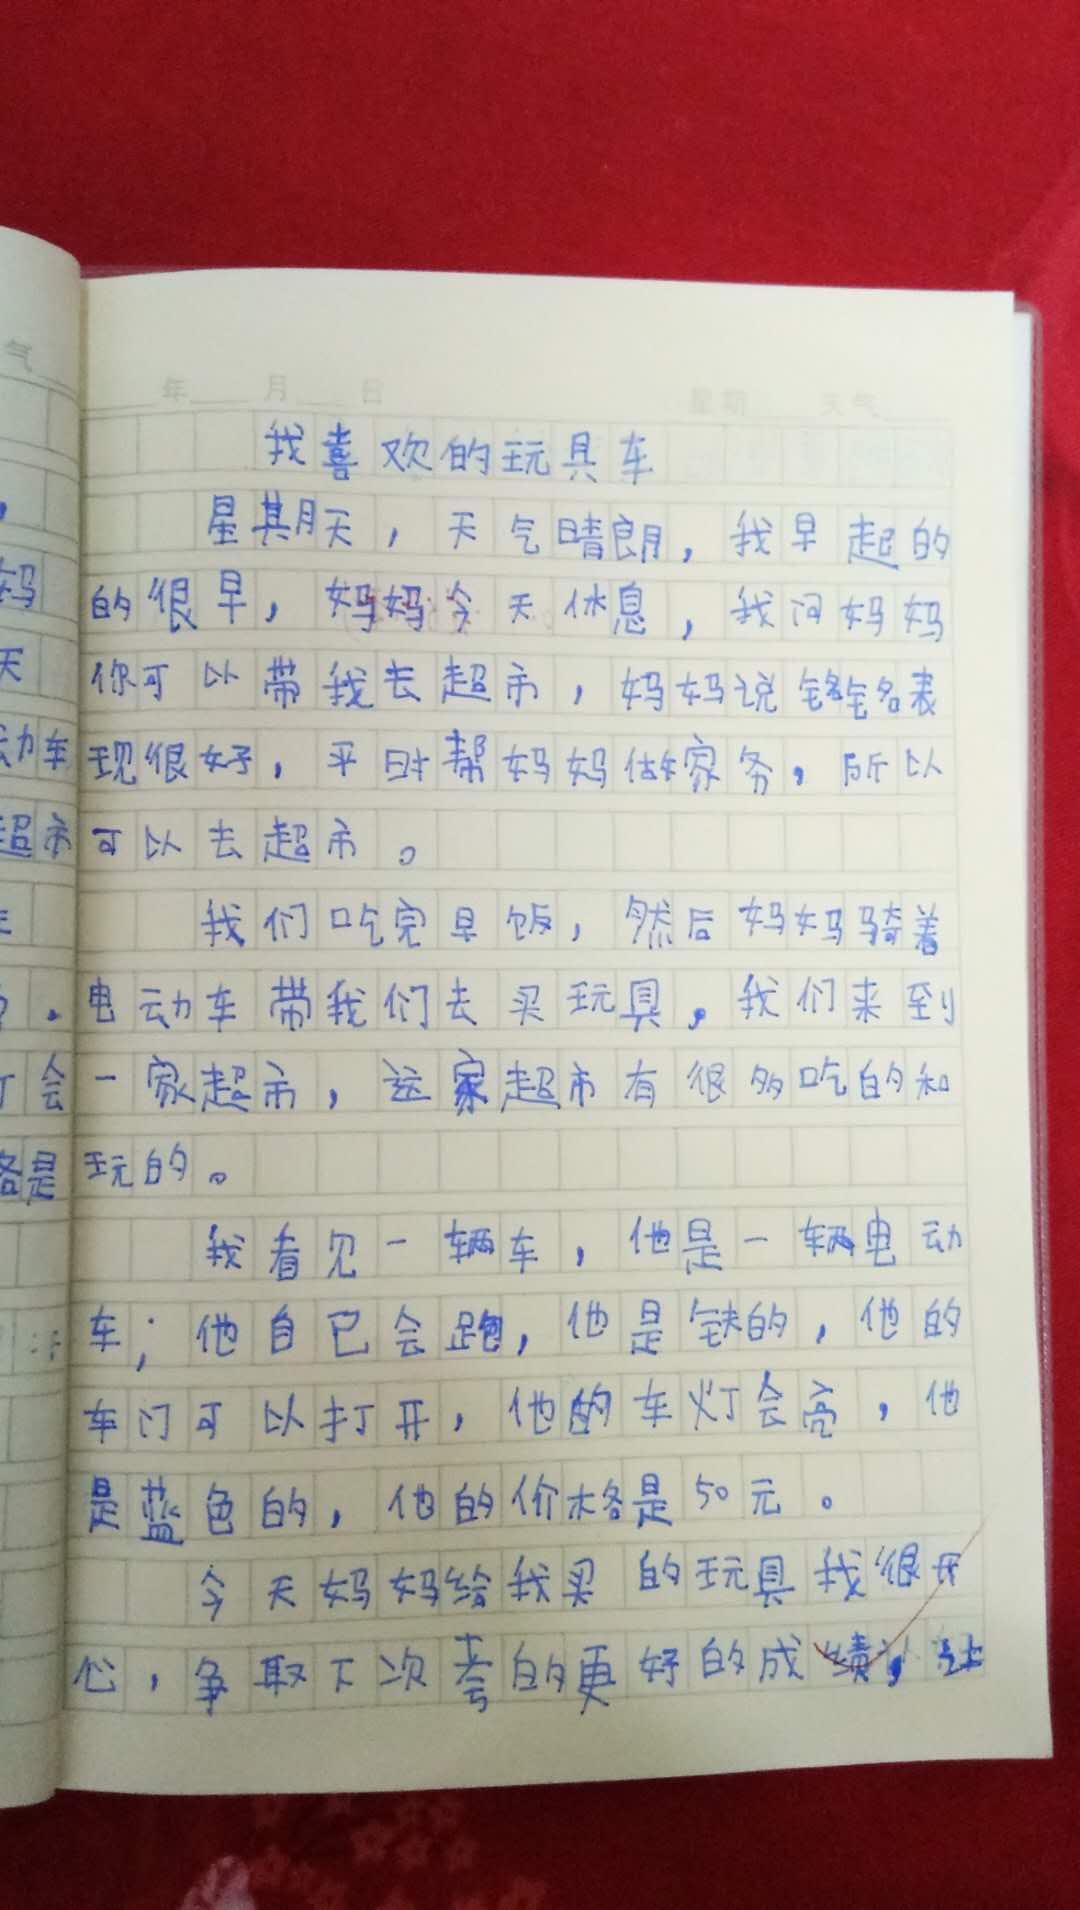 气
年 月 日 星期 天气
我喜欢的玩具车
星期天，天气晴朗，我早起的
的很早，妈妈今天休息，我问妈妈
你可以带我去超市，妈妈说铭铭表
现很好，平时帮妈妈做家务，所以
可以去超市。
我们吃完早饭，然后妈妈骑着
电动车带我们去买玩具，我们来到
一家超市，这家超市有很多吃的和
玩的。
我看见一辆车，他是一辆电动
车；他自已会跑，他是铁的，他的
车门可以打开，他的车灯会亮，他
是蓝色的，他的价格是50元。
今天妈妈给我买的玩具我很开
心，争取下次考的更好的成绩，让
，
妈
天
动车
超市
会
格是